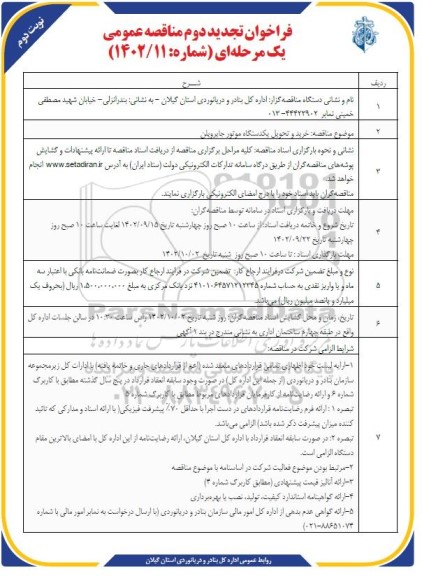 نوبت دوم
فراخوان تجدید دوم مناقصه عمومی
یک مرحله‌ای (شماره: ۱۴۰۲/۱۱)
ردیف
شـــرح
۱
نام و نشانی دستگاه مناقصه‌گزار: اداره کل بنادر و دریانوردی استان گیلان - به نشانی: بندرانزلی- خیابان شهید مصطفی
خمینی نمابر ۴۴۴۲۳۹۰۲-۰۱۳
۲
موضوع مناقصه: خرید و تحویل یکدستگاه موتور جایروپلن
۳
نشانی و نحوه بارگزاری اسناد مناقصه: کلیه مراحل برگزاری مناقصه از دریافت اسناد مناقصه تا ارائه پیشنهادات و گشایش
پوشه‌های مناقصه‌گران از طریق درگاه سامانه تدارکات الکترونیکی دولت (ستاد ایران) به آدرس www.setadiran.ir انجام
خواهد شد.
مناقصه‌گران باید اسناد خود را با درج امضای الکترونیکی بارگزاری نمایند.
۴
مهلت دریافت و بارگزاری اسناد در سامانه توسط مناقصه‌گران:
تاریخ شروع و خاتمه دریافت اسناد: از ساعت ۱۰ صبح روز چهارشنبه تاریخ ۱۴۰۲/۰۹/۱۵ لغایت ساعت ۱۰ صبح روز
چهارشنبه تاریخ ۱۴۰۲/۰۹/۲۲
مهلت بارگذاری اسناد: تا ساعت ۱۰ صبح روز شنبه تاریخ ۱۴۰۲/۱۰/۰۲
۵
نوع و مبلغ تضمین شرکت درفرایند ارجاع کار: تضمین شرکت در فرایند ارجاع کار بصورت ضمانت‌نامه بانکی با اعتبار سه
ماه و یا واریز نقدی به حساب شماره ۴۱۰۱۰۶۴۵۷۱۲۱۲۳۴۵ نزد بانک مرکزی به مبلغ ۱.۵۰۰.۰۰۰.۰۰۰ ریال (بحروف یک
میلیارد و پانصد میلیون ریال) می‌باشد.
۶
تاریخ، زمان و محل گشایش اسناد مناقصه‌گران: روز شنبه تاریخ ۱۴۰۲/۱۰/۰۲ راس ساعت ۱۰:۳۰ در سالن جلسات اداره کل
واقع در طبقه چهارم ساختمان اداری به نشانی مندرج در بند ۱ آگهی
۷
شرایط الزامی شرکت در مناقصه:
۱-ارایه لیست خود اظهاری تمامی قراردادهای منعقد شده (اعم از قراردادهای جاری و خاتمه یافته) با ادارات کل زیرمجموعه
سازمان بنادر و دریانوردی (از جمله این اداره کل) در صورت وجود سابقه انعقاد قرارداد در پنج سال گذشته مطابق با کاربرگ
شماره ۶ و ارائه رضایتنامه از کارفرمایان قراردادهای مربوطه مطابق با کاربرگ شماره ۵
تبصره ۱ : ارائه فرم رضایتنامه قراردادهای در دست اجرا با حداقل ۷۰٪ پیشرفت فیزیکی( با ارائه اسناد و مدارکی که تائید
کننده میزان پیشرفت ذکر شده باشد) الزامی می‌باشد.
تبصره ۲: در صورت سابقه انعقاد قرارداد با اداره کل استان گیلان، ارائه رضایت‌نامه از این اداره کل با امضای بالاترین مقام
دستگاه الزامی است.
۲-مرتبط بودن موضوع فعالیت شرکت در اساسنامه با موضوع مناقصه
۳-ارائه آنالیز قیمت پیشنهادی (مطابق کاربرگ شماره ۴)
۴-ارائه گواهینامه استاندارد کیفیت، تولید، نصب یا بهره‌برداری
۵-ارائه گواهی عدم بدهی از اداره کل امور مالی سازمان بنادر و دریانوردی (با ارسال درخواست به نمابر امور مالی با شماره
۸۸۶۵۱۰۷۴-۰۲۱)
روابط عمومی اداره کل بنادر و دریانوردی استان گیلان